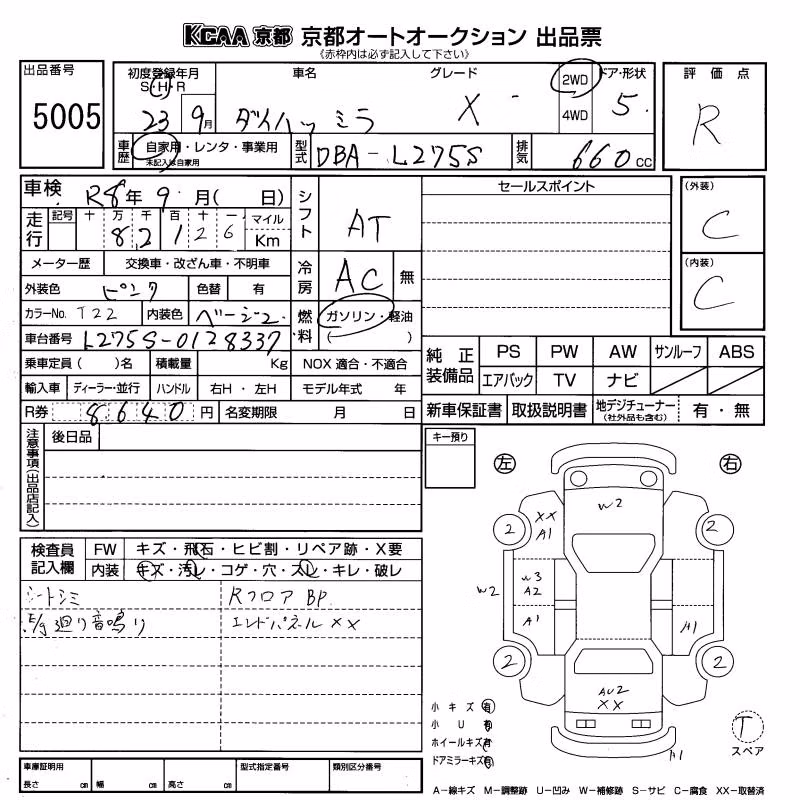 KCAA 京都 京都オートオークション 出品票
《赤枠内は必ず記入して下さい》
出品番号
5005
初度登録年月 車名 グレード 2WD ドア・形状 評価点
S・H・R
23 9月 ダイハツ ミラ X 4WD 5 R
車歴 自家用・レンタ・事業用 型式 DBA-L275S 排気 660cc
未記入は自家用
車検 R8年 9月( 日) シフト AT セールスポイント (外装)
C
走行 記号 十 万 千 百 十 一 マイル
8 2 1 2 6 Km
メーター歴 交換車・改ざん車・不明車 冷房 AC 無 (内装)
C
外装色 ピンク 色替 有
カラーNo. T22 内装色 ベージュ 燃料 ガソリン・軽油
( )
車台番号 L275S-0128337
乗車定員( )名 積載量 Kg NOX 適合・不適合 純正装備品 PS PW AW サンルーフ ABS
輸入車 ディーラー・並行 ハンドル 右H・左H モデル年式 年 エアバック TV ナビ
R券 8640円 名変期限 月 日 新車保証書 取扱説明書 地デジチューナー 有・無
(社外品も含む)
注意事項(出品店記入) 後日品 キー預り 左 右
W2
2 XX A1 2
検査員記入欄 FW キズ・飛石・ヒビ割・リペア跡・X要
内装 キズ・汚レ・コゲ・穴・スレ・キレ・破レ
シートシミ Rフロア BP.
W2 W3 A2
廻り音鳴り エンドパネル XX
A1 A1
2 2
AU2
XX
小キズ 有
小U 有
ホイールキズ 有
ドアミラーキズ 有
T
スペア
A1
車庫証明用 型式指定番号 類別区分番号
長さ cm 幅 cm 高さ cm
A-線キズ M-調整跡 U-凹み W-補修跡 S-サビ C-腐食 XX-取替済